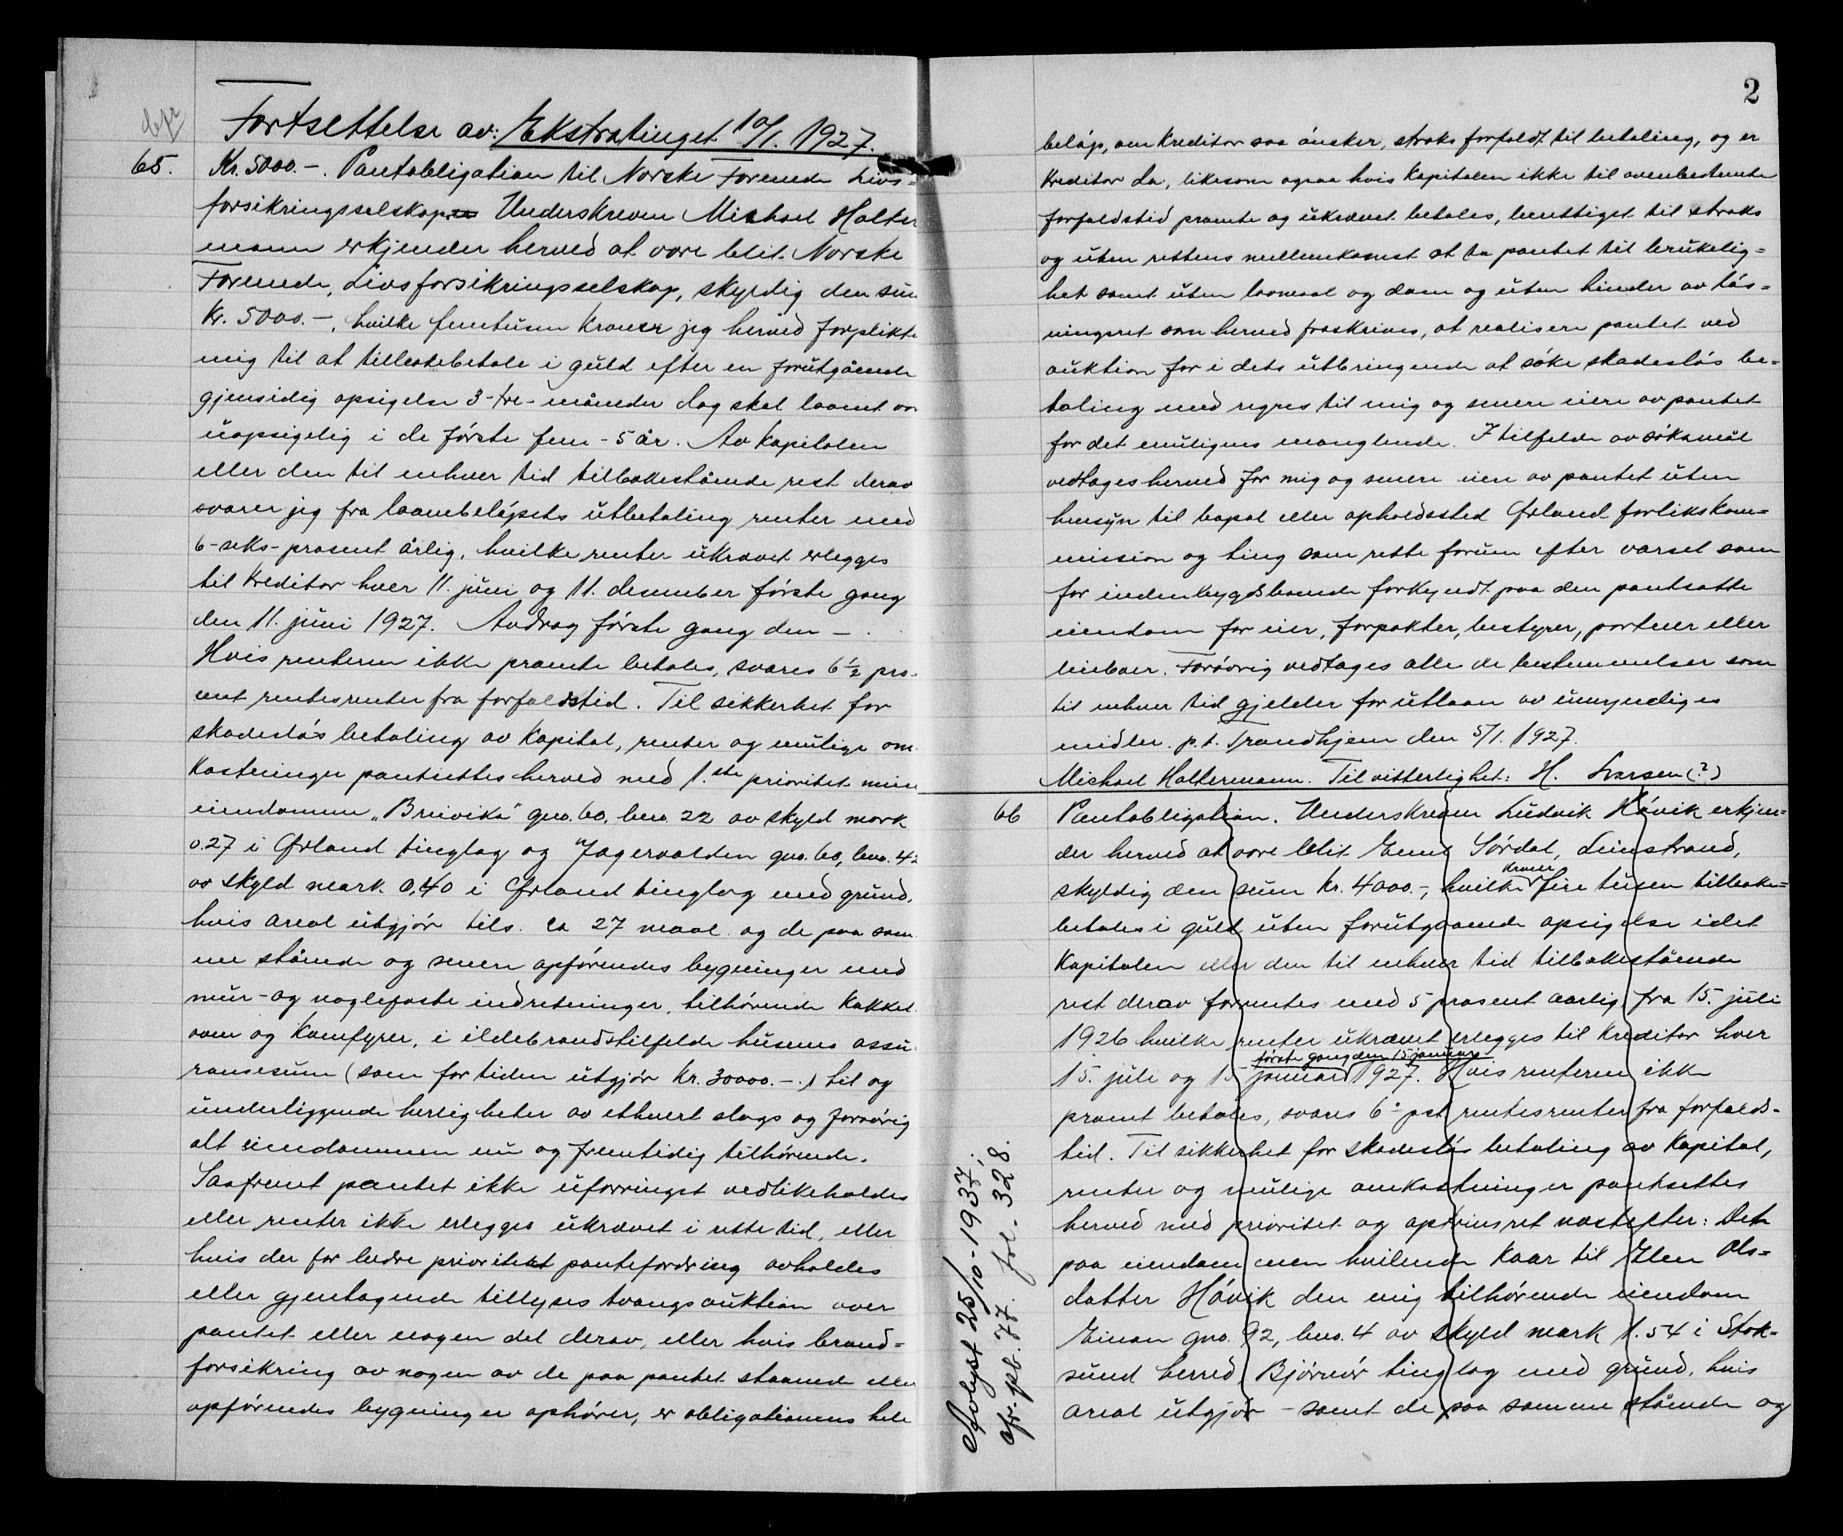 Fortsettelse av: Ekstratinget 10/1. 1927.
65. Kr. 5000.-. Pantobligation til Norske Forenede Livs=
forsikringsselskap Underskreven Michael Holter
mann erkjender herved at være blit Norske
Forenede, Livsforsikringsselskap, skyldig den sum
Kr. 5000.-, hvilke femtusen kroner jeg herved forplikte
mig til at tilbakebetale i guld efter en forutgående
gjensidig opsigelse 3-tre-måneder dog skal laanet
uopsigelig i de første fem-5 år. Av kapitalen
eller den til enhver tid tilbakestående rest derav
svarer jeg fra laanebeløpets utbetaling renter med
6-seks-prosent årlig, hvilke renter ukrævet erlegges
til kreditor hver 11. juni og 11. desember første gang
den 11. juni 1927. Avdrag første gang den -.
Hvis renterne ikke promte betales, svares 6½ pro-
sent rentesrenter fra forfaldstid. Til sikkerhet for
skadesløs betaling av kapital, renter og mulige om
kostninger pantsettes herved med 1.ste prioritet min
eiendommen "Breivika" gno. 60, bno. 22 av skyld mark
0.27 i Ørland tinglag og Jagervolden gno. 60, bno. 42
av skyld mark 0,40 i Ørland tinglag med grund,
hvis areal utgjør tils. ca 27 maal og de paa sam
me stående og senere opførendes bygninger med
mur- og naglefaste indretninger, tilhørende kakkel
ovn og komfyrer, i ildebrandstilfelde husenes assu
ransesum (som for tiden utgjør kr. 30000.-.) til og
underliggende herligheter av ethvert slags og forøvrig
alt eiendommen nu og fremtidig tilhørende.
Saafremt pantet ikke uforringet vedlikeholdes
eller renter ikke erlegges ukrævet i rette tid, eller
hvis der for bedre prioritert pantefordring avholdes
eller gjentagende tillyses tvangsauktion over
pantet eller nogen del derav, eller hvis brand=
forsikring av nogen av de paa pantet staaende eller
opførendes bygninger ophører, er obligationens hele
2
beløp, om kreditor saa ønsker, straks forfaldt til betaling, og er
kreditor da, likesom ogsaa hvis kapitalen ikke til ovenbestemte
forfaldstid promte og ukrævet betales, berettiget til straks
og uten rettens mellemkomst at ta pantet til brukelig=
het samt uten lovmaal og dom og uten hinder av løs=
ningsret som herved fraskrives, at realisere pantet ved
auktion for i dets utbringende at søke skadesløs be=
taling med regres til mig og senere eiere av pantet
for det muligens manglende. I tilfelde av søksmål
vedtages herved for mig og senere eiere av pantet uten
hensyn til bopæl eller opholdssted Ørland forlikskom=
mission og ting som rette forum efter varsel som
for indenbygdsboende forkyndt paa den pantsatte
eiendom for eier, forpakter, bestyrer, portner eller
leieboer. Forøvrig vedtages alle de bestemmelser som
til enhver tid gjelder for utlaan av umyndiges
midler. p.t. Trondhjem den 5/1. 1927.
Michael Holtermann. Til vitterlighet: H. Ivarsen (?)
66 Pantobligation. Underskreven Ludvik Høvik erkjen=
der herved at være blit Emil Sørdal, Leinstrand,
kroner
skyldig den sum kr. 4000.-, hvilke fire tusen tilbake=
betales i guld uten forutgaaende opsigelse idet
kapitalen eller den til enhver tid tilbakestående
rest derav forrentes med 5 prosent aarlig fra 15. juli
1926 hvilke renter ukrævet erlegges til kreditor hver
første gang den 15 januar
15. juli og 15 januar 1927. Hvis renterne ikke
promt betales, svares 6 pct rentesrenter fra forfalds-
tid. Til sikkerhet for skadesløs betaling av kapital,
renter og mulige omkostninger pantsettes
herved med prioritet og optrinsret næstefter: Det
paa eiendommen hvilende kaar til Elen Ols=
datter Høvik den mig tilhørende eiendom
Einan gno. 92, bno. 4 av skyld mark 1.54 i Stok-
sund herred Bjørnør tinglag med grund, hvis
areal utgjør - samt de paa samme stående og
Avlyst 25/10-1937.
cfr. pb. 77. fol. 328.